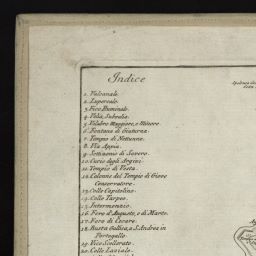 Indice
1. Vulcanale.
2. Lupercale.
3. Fico Ruminale.
4. Velia, Subvelia.
5. Velabro Maggiore, e Minore.
6. Fontana di Giuturna.
7. Tempio di Nettunno.
8. Via Appia.
9. Settizonio di Severo.
10. Curia degli Argini.
11. Tempio di Vesta.
12. Colonne del Tempio di Giove
Conservatore.
13. Colle Capitolino.
14. Colle Tarpeo.
15. Intermonzio.
16. Foro d'Augusto, e di Marte.
17. Foro di Cesare.
18. Busta Gallica, a S. Andrea in
Portogallo.
19. Vico Scellerato.
20. Colle Laziale.